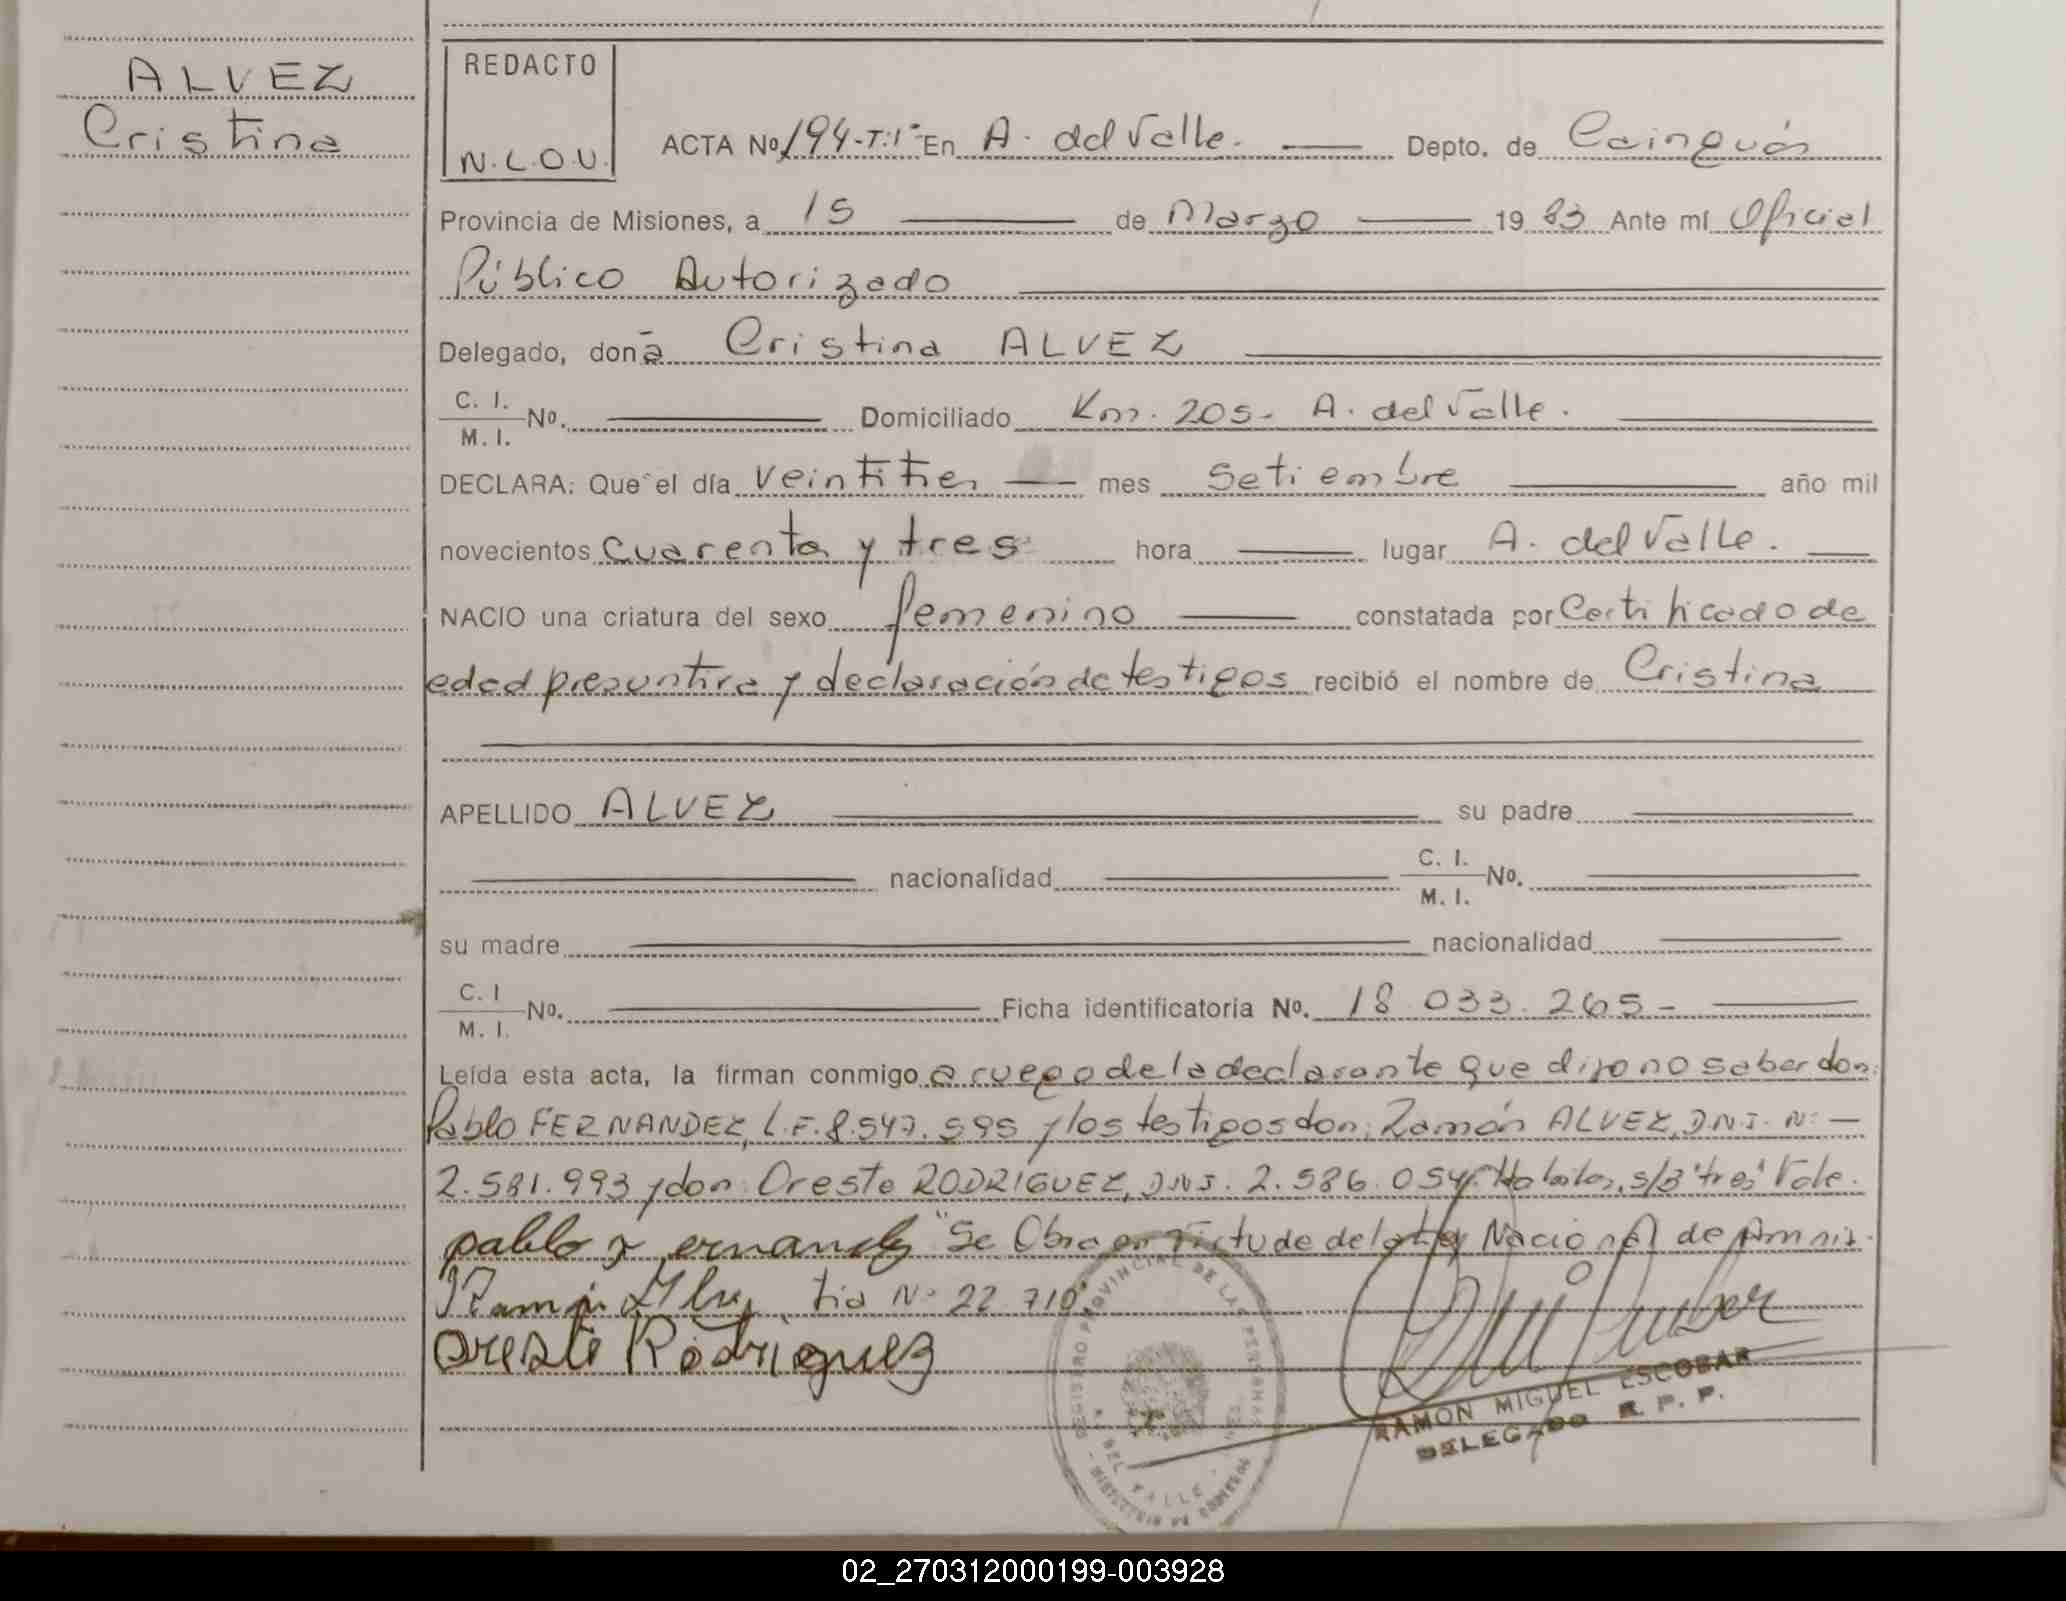 ALVEZ
Cristina
REDACTO
N.L.O.U.
ACTA No 194-T:1° En A. del Valle. Depto. de Cainguás
Provincia de Misiones, a 15 de Marzo 1983 Ante mí Oficial
Público Autorizado
Delegado, doña Cristina ALVEZ
C. I.
M. I. No. Domiciliado Km. 205- A. del Valle.
DECLARA: Que el día veintitres mes Setiembre año mil
novecientos cuarenta y tres hora lugar A. del Valle.
NACIO una criatura del sexo femenino constatada por Certificado de
edad presuntiva y declaración de testigos recibió el nombre de Cristina
APELLIDO ALVEZ su padre
nacionalidad C. I.
M. I. No.
su madre nacionalidad
C. I
M. I. No. Ficha identificatoria No. 18.033.265-
Leída esta acta, la firman conmigo a ruego de la declarante que dijo no saber don:
Pablo FERNANDEZ, L.E. 8.547.595 y los testigos don: Ramón ALVEZ, D.N.I. N:-
2.581.993 y don: Oreste RODRÍGUEZ, D.N.I. 2.586.054. s/b "tres" Vale.
pablo fernandez "Se Obra en Virtud de de la Ley Nacional de Amnis-
Ramon Alvez tia N° 22.710"
Oreste Rodriguez
REGISTRO PROVINCIAL DE LAS PERSONAS
DEL VALLE
RAMON MIGUEL ESCOBAR
DELEGADO R. P. P.
02_270312000199-003928